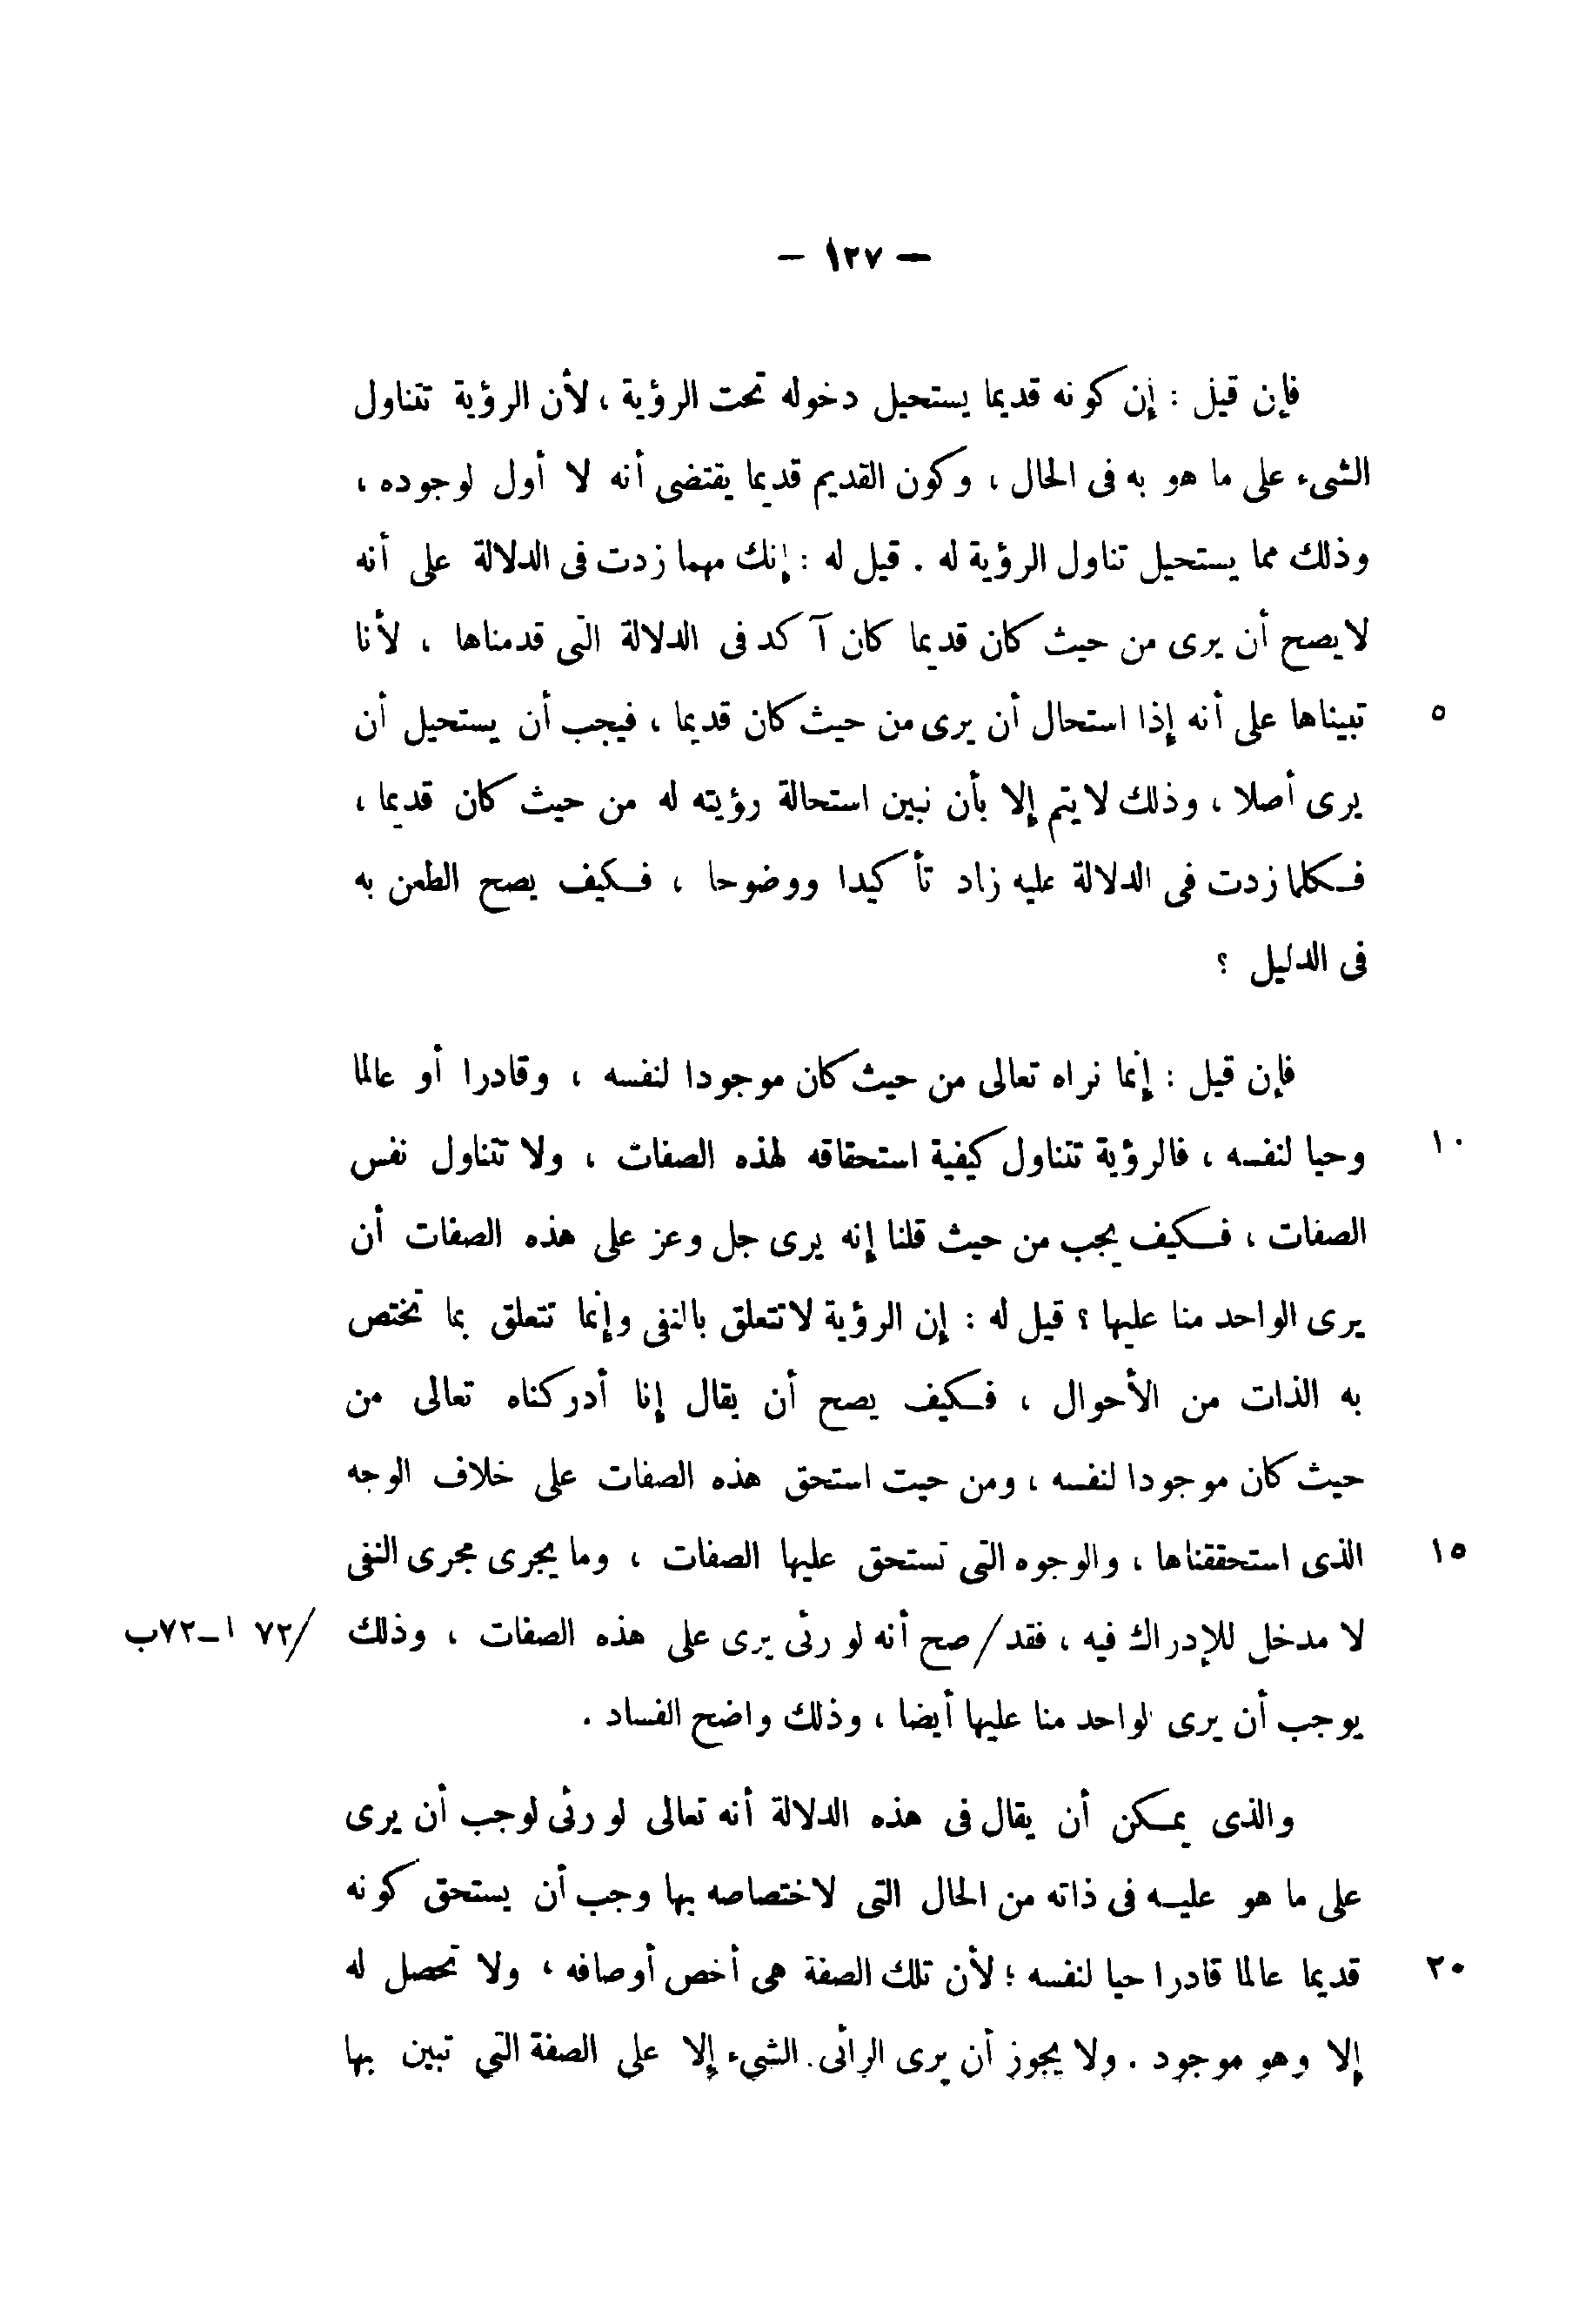 — ١٢٧ —
فإن قيل : إن كونه قديما يستحيل دخوله تحت الرؤية ، لأن الرؤية تتناول
الشىء على ما هو به فى الحال ، وكون القديم قديما يقتضى أنه لا أول لوجوده ،
وذلك مما يستحيل تناول الرؤية له . قيل له : إنك مهما زدت فى الدلالة على أنه
لا يصح أن يرى من حيث كان قديما كان آكد فى الدلالة التى قدمناها ، لأنا
تبيناها على أنه إذا استحال أن يرى من حيث كان قديما ، فيجب أن يستحيل أن ٥
يرى أصلا ، وذلك لا يتم إلا بأن نبين استحالة رؤيته له من حيث كان قديما ،
فكلما زدت فى الدلالة عليه زاد تأكيدا ووضوحا ، فكيف يصح الطعن به
فى الدليل ؟
فإن قيل : إنما نراه تعالى من حيث كان موجودا لنفسه ، وقادرا أو عالما
وحيا لنفسه ، فالرؤية تتناول كيفية استحقاقه لهذه الصفات ، ولا تتناول نفس ١٠
الصفات ، فكيف يجب من حيث قلنا إنه يرى جل وعز على هذه الصفات أن
يرى الواحد منا عليها ؟ قيل له : إن الرؤية لا تتعلق بالنفى وإنما تتعلق بما تختص
به الذات من الأحوال ، فكيف يصح أن يقال إنا أدركناه تعالى من
حيث كان موجودا لنفسه ، ومن حيت استحق هذه الصفات على خلاف الوجه
الذى استحققناها ، والوجوه التى تستحق عليها الصفات ، وما يجرى مجرى النفى ١٥
لا مدخل للإدراك فيه ، فقد / صح أنه لو رئى يرى على هذه الصفات ، وذلك / ٧٢ ا ـ ٧٢ب
يوجب أن يرى لواحد منا عليها أيضا ، وذلك واضح الفساد .
والذى يمكن أن يقال فى هذه الدلالة أنه تعالى لو رئى لوجب أن يرى
على ما هو عليه فى ذاته من الحال التى لاختصاصه بها وجب أن يستحق كونه
قديما عالما قادرا حيا لنفسه ؛ لأن تلك الصفة هى أخص أوصافه ، ولا تحصل له ٢٠
إلا وهو موجود . ولا يجوز أن يرى الرائى الشىء إلا على الصفة التى تبين بها